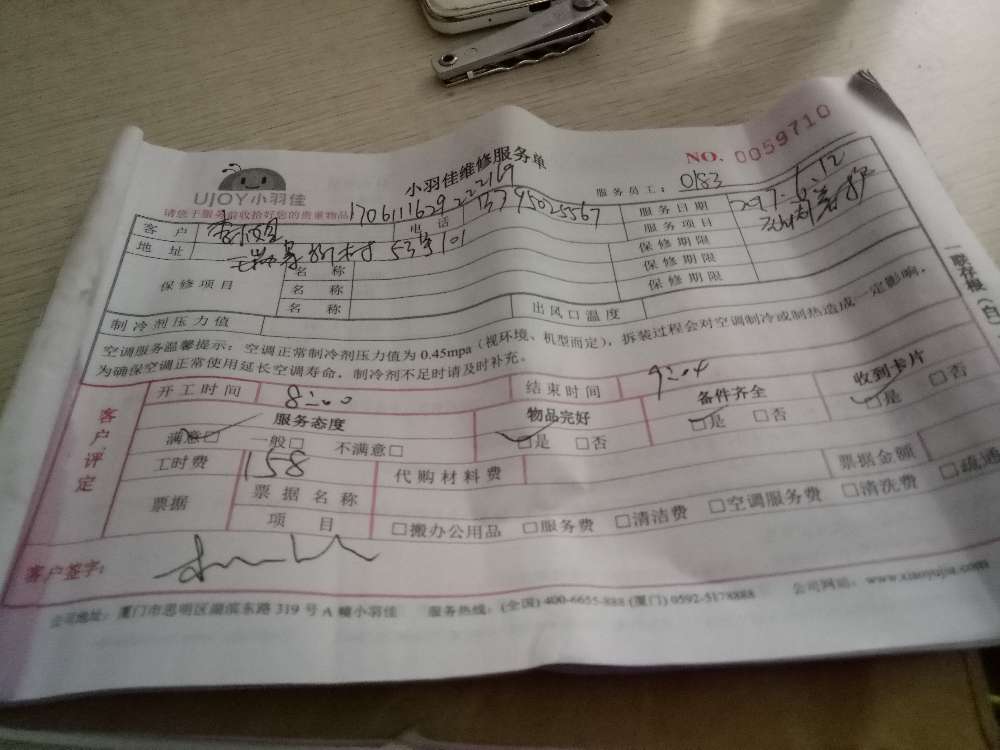 小羽佳维修服务单
NO. 0059710
UJOY小羽佳
服务员工: 0183
请您于服务前收拾好您的贵重物品 1706111629222169
客户 电话 13745025567 服务日期 2017.6.12
地址 53号101 服务项目
保修项目 名称 保修期限
名称 保修期限
名称 保修期限
制冷剂压力值 出风口温度
空调服务温馨提示：空调正常制冷剂压力值为0.45mpa（视环境、机型而定），拆装过程会对空调制冷或制热造成一定影响，
为确保空调正常使用延长空调寿命，制冷剂不足时请及时补充。
一联存根（白
客户评定
开工时间 8:00 结束时间 9:04
服务态度 物品完好 备件齐全 收到卡片
满意□ 一般□ 不满意□ □是 □否 □是 □否 □是 □否
工时费 158 代购材料费 票据金额
票据 票据名称
项目 □搬办公用品 □服务费 □清洁费 □空调服务费 □清洗费 □疏通
客户签字：
公司地址：厦门市思明区湖滨东路319号A幢小羽佳 服务热线：(全国) 400-6655-888 (厦门) 0592-5178888 公司网站：www.xiaoyujia.com